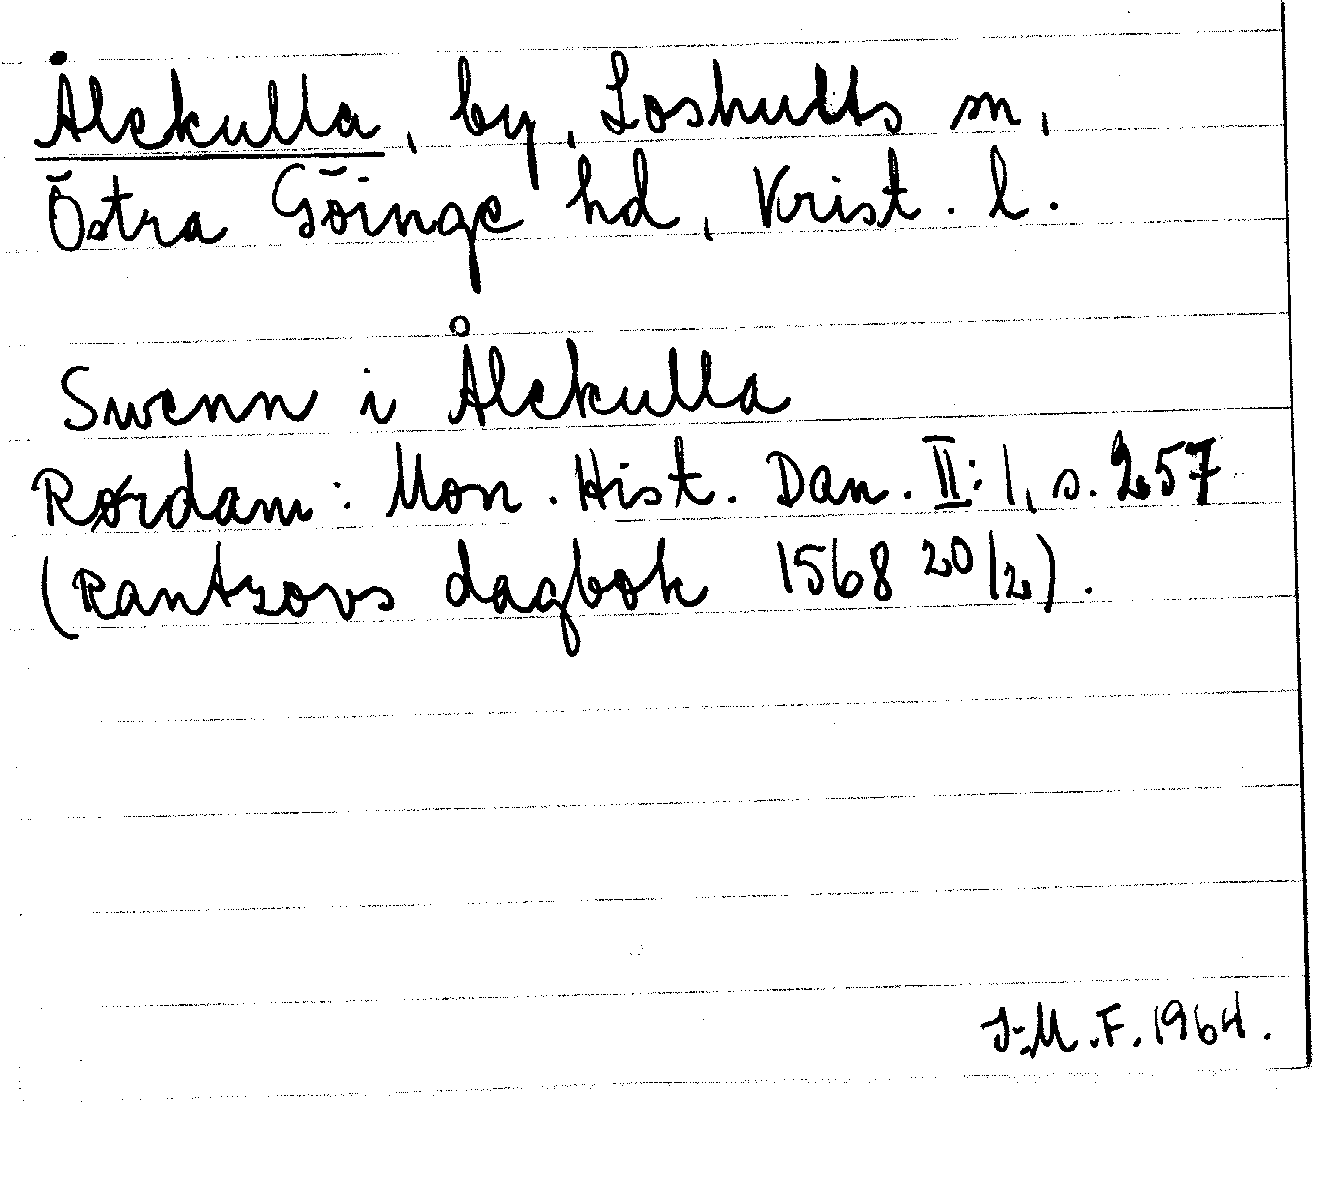 Ålekulla, by, Loshults sn,
Östra Göinge hd, Krist. l.
Swenn i Ålekulla
Rørdam: Mon. Hist. Dan. II:1, s. 257
(Rantzovs dagbok 1568 20/2).
J-M.F. 1964.